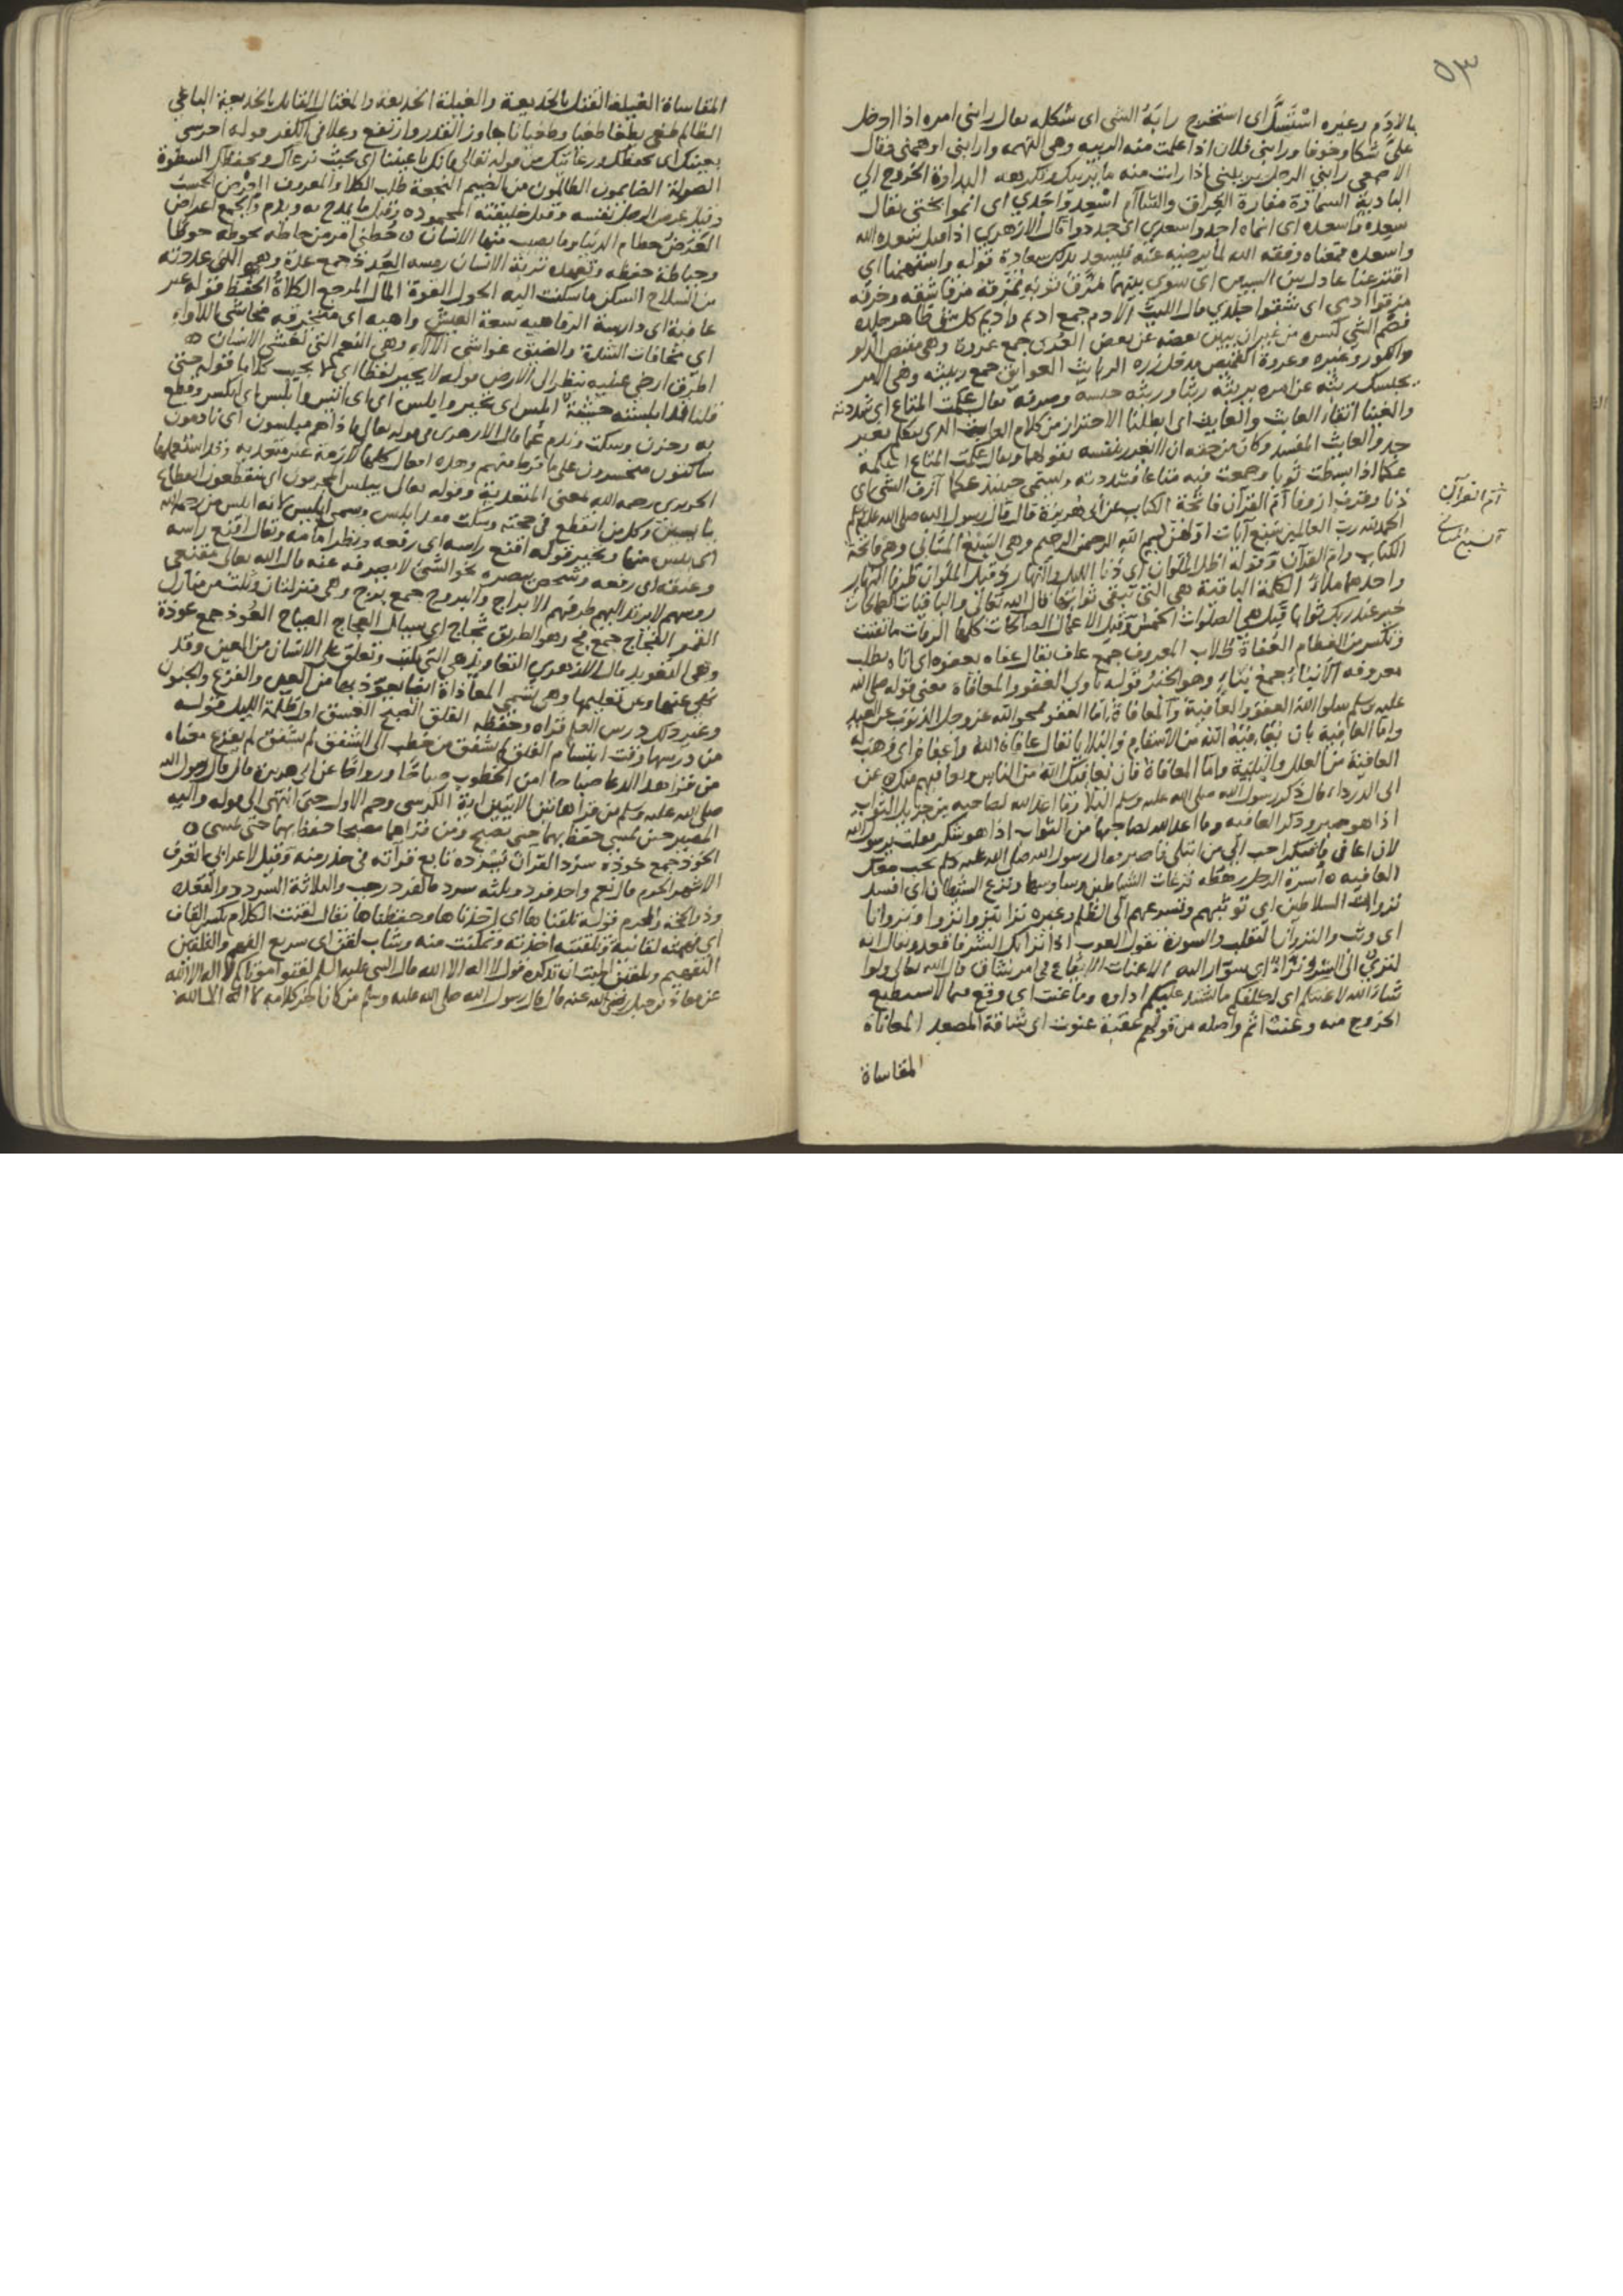 ٥٣
بالأدم وغيره استنسل اى استخرج رابه الشى اى شكله يقال رابنى امره اذا ادخل
على شكا وخوفا ورابنى فلان اذا علمت منه الريبه وهى التهمه وارابنى اوهمنى وقال
الاصمعى رابنى الرجل يريبنى اذا رايت منه ما يريبك وتكرهه البداوة الخروج الى
البادية السماوة مفازة العراق والشام اسعد واجدى اى انموا بختى يقال
سعده واسعده اى انماه اجد واسعدى اى جدد وا قال الازهرى اذا قيل سعده الله
واسعده فمعناه وفقه الله لما يرضيه عنه فيسعد بذلك سعادة قوله واستهمنا اى
اقترعنا عادل بين السهمين اى سوى بينهما مزق ثوبه يمزقه مزقا شقه وخرقه
مزقوا ادمى اى شققوا جلدى قال الليث الادم جمع اديم واديم كل شى ظاهر جلده
فصم الشى كسره من غير ان يبين بعضه عن بعض العرى جمع عروة وهى مقبض الدلو
والكوز وغيره وعروة القميص مدخل زره الربايث العوايق جمع ربيثه وهى الامر
يحبسك ربثه عن امره يربثه ربثا وربثه حبسه وصرفه يقال عكمت المتاع اى شددته
والغينا اتقاء العابث والعايث اى ابطلنا الاحتراز من كلام العابث الذى يتكلم بغير
جد والعايث المفسد وكان من حقه ان الغير نفسه يقولهما ويقال عكمت المتاع اعكمه
عكما اذا بسطت ثوبا وجمعت فيه متاعا فشددته ويسمى حينئذ عكما ازف الشى اى
دنا وقرب ازوفا ام القرآن فاتحة الكتاب عن ابى هريرة قال قال رسول الله صلى الله عليه وسلم
الحمد لله رب العالمين سبع آيات اولهن بسم الله الرحمن الرحيم وهى السبع المثانى وهى فاتحة
الكتاب وام القرآن وقوله اظل الملوان اى دنا الليل والنهار وقيل الملوان طرفا النهار
واحدهما ملا الكلمة الباقية هى التى تبقى ثوابها قال الله تعالى والباقيات الصالحات
خير عند ربك ثوابا قيل هى الصلوات الخمس وقيل الاعمال الصالحات كلها الرفات ما تفتت
وتكسر من العظام العفاة طلاب المعروف جمع عاف يقال عفاه يعفوه اى اتاه يطلب
معروفه الانباء جمع نباء وهو الخبر قوله ناوى العفو والمعافاة معنى قوله صلى الله
عليه وسلم سلوا الله العفو والعافية والمعافاة اما العفو فمحو الله عز وجل الذنوب عن العبد
واما العافية بان يعافيه الله من الاسقام والبلايا يقال عافاه الله واعفاه اى وهب له
العافية من العلل والبلية واما المعافاة فان يعافيك الله من الناس ويعافيهم منك عن
ابى الدرداء قال ذكر رسول الله صلى الله عليه وسلم البلا وما اعد الله لصاحبه من جزيل الثواب
اذا هو صبر وذكر العافيه وما اعد الله لصاحبها من الثواب اذا هو شكر فقلت يرسول الله
لان اعافى فاشكر احب الى من ابتلى فاصبر فقال رسول الله صلى الله عليه وسلم يحب معك
العافيه اسرة الرجل رهطه نزغات الشياطين وساوسها ونزغ الشيطان اى افسد
نزوات السلاطين اى توثبهم وتسرعهم الى الظلم وغيره نزا ينزوا نزوا ونزوانا
اى وثب والنزوان التقلب والسورة تقول العرب اذا نزا بك الشر فاقعد ويقال انه
لنزى الى الشر ونزاء اى سوار اليه الاعنات الايقاع فى امر شاق قال الله تعالى ولو
شاء الله لاعنتكم اى لكلفكم ما اشتد عليكم اداوه وما عنت اى وقع فيما لا يستطيع
الخروج منه وعنت اثم واصله من قولهم عقبة عنوت اى شاقة المصعد المعاناة
المقاساة
ام القرآن
السبع المثانى
المقاساة الغيلة القتل بالخديعة والغيلة الخديعة والمغتال القاتل بالخديعة الباغى
الظالم طغى يطغا طغيا وطغيانا جاوز القدر وارتفع وغلا فى الكفر قوله احرسنى
بعينك اى بحفظك ورعايتك من قوله تعالى فانك باعيننا اى بحيث نرعاك ونحفظك السطوة
الصولة الضايمون الظالمون من الضيم النجعة طلب الكلا والمعروف العرض الحسب
وقيل عرض الرجل نفسه وقيل خليقته المحموده وقيل ما يمدح به ويذم والجمع اعراض
العرض حطام الدنيا وما يصيب منها الانسان حطنى امر من حاطه يحوطه حوطا
وحياطة حفظه وتعهده تربة الانسان رمسه العدد جمع عدة وهى التى عددته
من السلاح السكن ما سكنت اليه الحول القوة المآل المرجع الكلاة الحفظ قوله غير
عافية اى دارسة الرفاهيه سعة العيش واهيه اى متخرقه مخاشى اللاواء
اى مخافات الشدة والضيق غواشى الآلاء وهى النعم التى تغشى الانسان
اطرق ارخى عينيه ينظر الى الارض قوله لا يحير لفظا اى لا يجيب كلاما قوله حتى
قلنا قد ابلسته خشية ابلس اى تحير وابلس اى اى ايس وابلس اى انكسر وقطع
به وحزن وسكت وندم غما قال الازهرى فى قوله تعالى فاذا هم مبلسون اى نادمون
ساكتون متحسرون على ما فرط منهم وهذه افعال كلها لازمة غير متعديه وقد استعملها
الحريرى رحمه الله بمعنى المتعدية وقوله تعالى يبلس المجرمون اى ينقطعون انقطاع
يايسين وكل من انقطع فى حجته وسكت فقد ابلس وسمى ابليس لانه ابلس من رحمة الله
اى يئس منها وتحير قوله اقنع راسه اى رفعه ونظر امامه ويقال اقنع راسه
وعنقه اى رفعه وشخص ببصره نحو الشى لا يصرفه عنه قال الله تعالى مقنعى
روسهم لا يرتد اليهم طرفهم الابراج والبروج جمع برج وهى منزلتان وثلث من منازل
القمر الفجاج جمع فج وهو الطريق ثجاج اى سيال العجاج الصياح العوذ جمع عوذة
وهى التعويذ قال الازهرى التعاويذ هى التى تكتب وتعلق على الانسان من العين وقد
نهى عنها وعن تعليقها وهى تسمى المعاذاة ايضا يعوذ بها من العين والفزع والجنون
وغير ذلك درس العلم قراه وحفظه الفلق الصبح الغسق اول ظلمة الليل قوله
من درسها وقت ابتسام الفلق لم يشفق من خطب الى الشفق لم يشفق لم يفزع معناه
من قرا هذا الدعا صباحا امن الخطوب صباحا ورواحا عن ابى هريرة قال قال رسول الله
صلى الله عليه وسلم من قرأ هاتين الايتين اية الكرسى وحم الاول حتى انتهى الى قوله واليه
المصير حين يمسى حفظ بهما حتى يصبح ومن قراهما مصبحا حفظ بهما حتى يمسى
الخوذ جمع خوذة سرد القرآن يسرده تابع قرآته فى حدر منه وقيل لاعرابى اتعرف
الاشهر الحرم قال نعم واحد فرد وثلثه سرد فالفرد رجب والثلاثة السرد ذو القعده
وذو الحجة والمحرم قوله تلقناها اى اخذناها وحفظناها يقال لقنت الكلام بكسر القاف
اى فهمته لقانية وتلقنته اخذته وتمكنت منه وشاب لقن اى سريع الفهم والتلقين
التفهيم وتلقين الميت ان تذكره قول لا اله الا الله قال النبى عليه السلم لقنوا موتاكم لا اله الا الله
عن معاذ بن جبل رضى الله عنه قال قال رسول الله صلى الله عليه وسلم من كان اخر كلامه لا اله الا الله